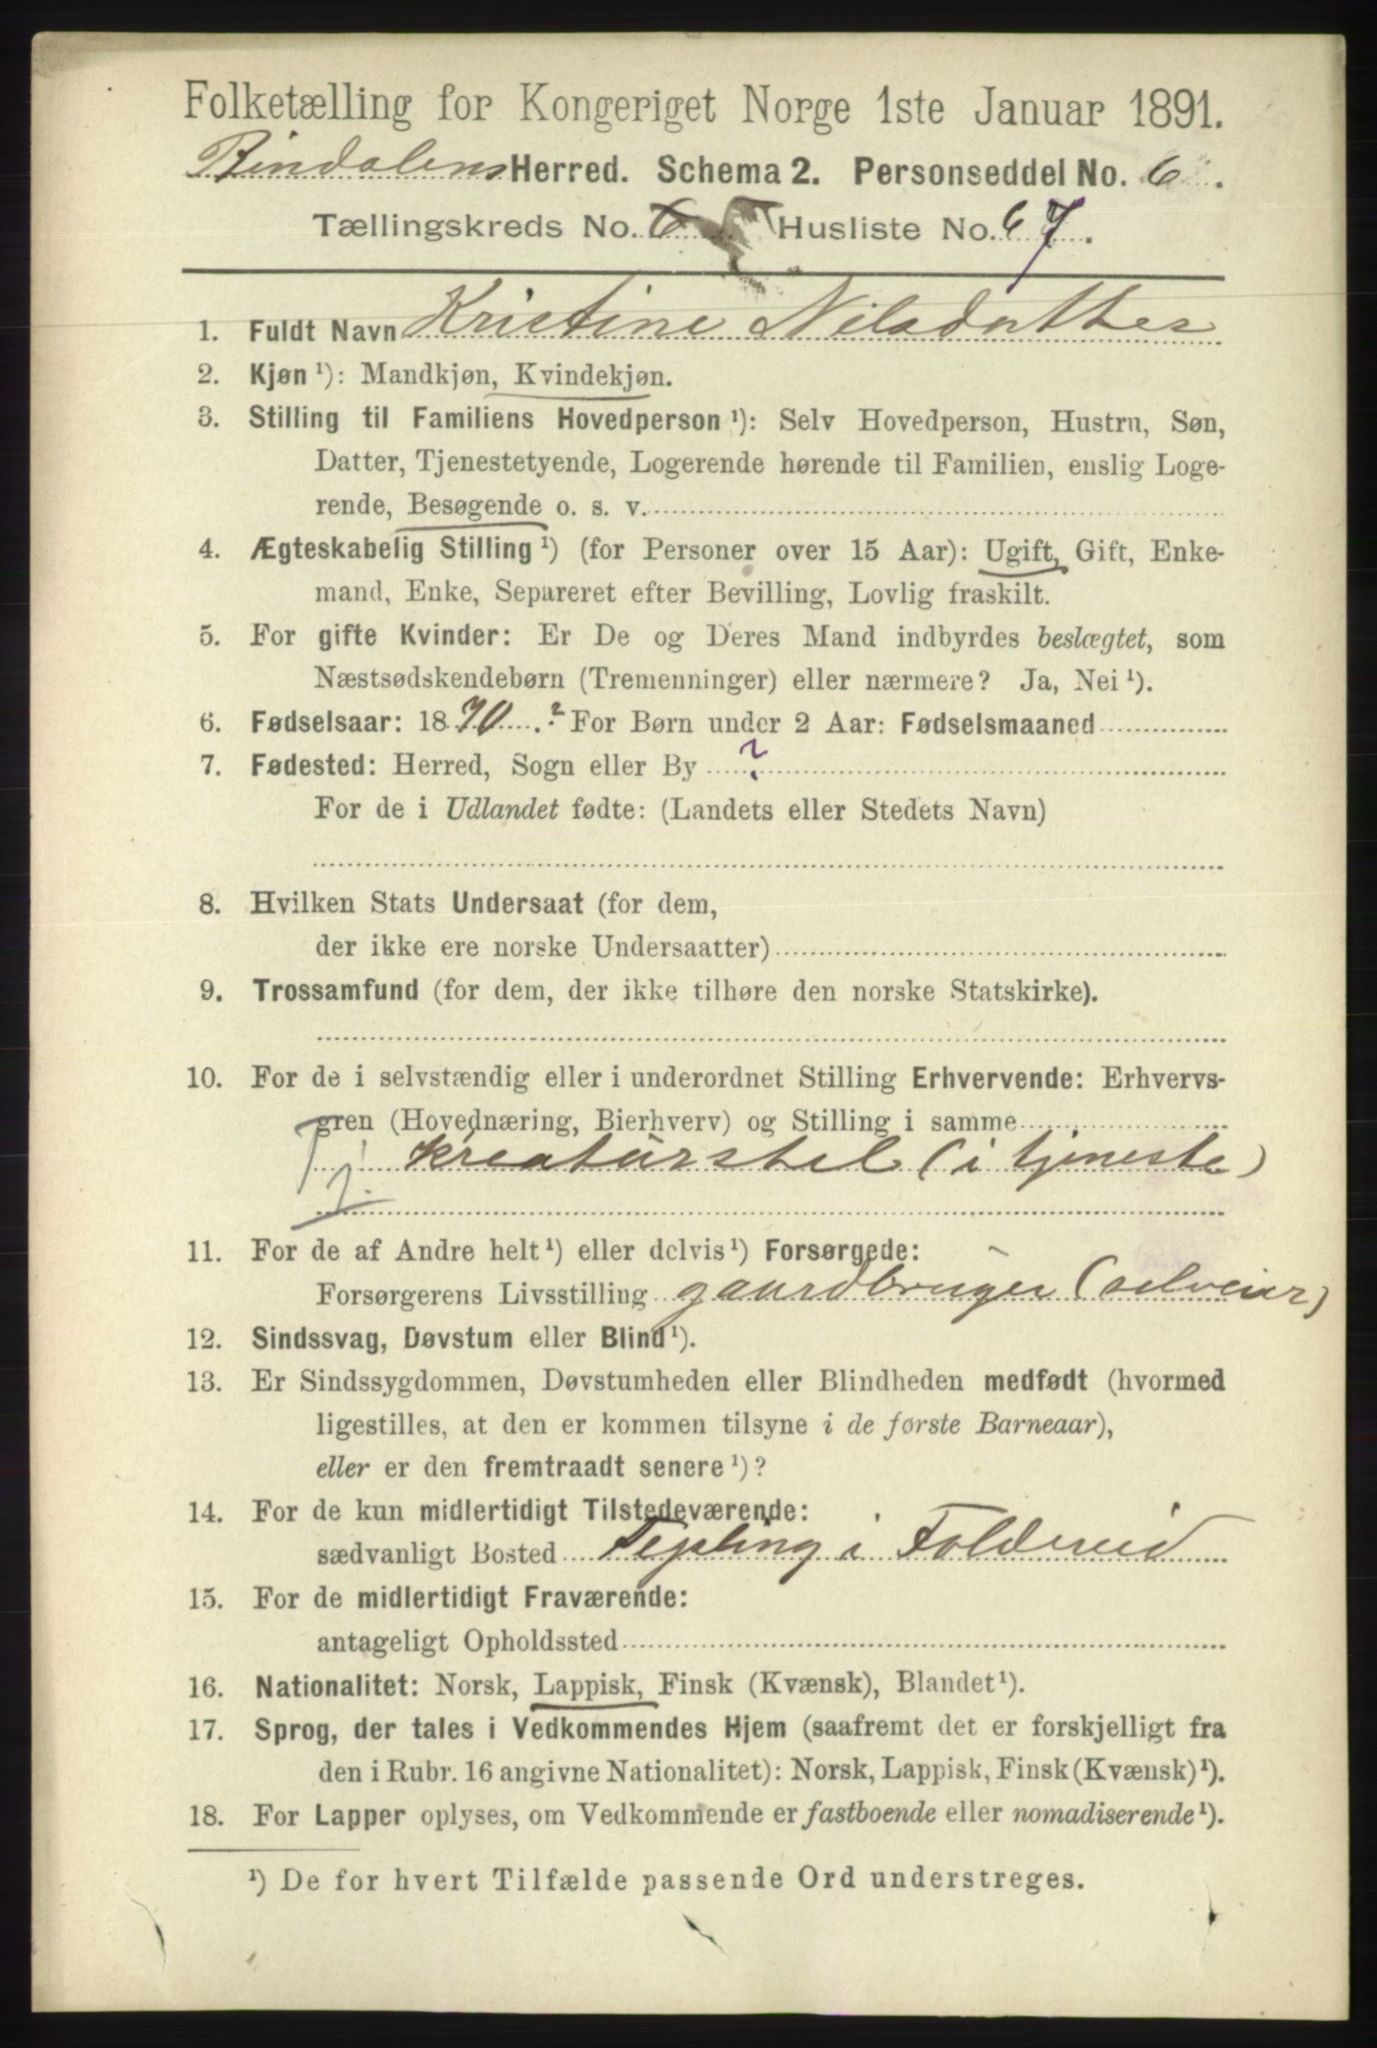 Folketælling for Kongeriget Norge 1ste Januar 1891.
Bindalens Herred. Schema 2. Personseddel No. 6.
Tællingskreds No. 6 Husliste No. 67.
1. Fuldt Navn Kristine Nilsdatter
2. Kjøn ¹): Mandkjøn, Kvindekjøn.
3. Stilling til Familiens Hovedperson ¹): Selv Hovedperson, Hustru, Søn,
Datter, Tjenestetyende, Logerende hørende til Familien, enslig Loge-
rende, Besøgende o. s. v.
4. Ægteskabelig Stilling ¹) (for Personer over 15 Aar): Ugift, Gift, Enke-
mand, Enke, Separeret efter Bevilling, Lovlig fraskilt.
5. For gifte Kvinder: Er De og Deres Mand indbyrdes beslægtet, som
Næstsødskendebørn (Tremenninger) eller nærmere? Ja, Nei ¹).
6. Fødselsaar: 1870.? For Børn under 2 Aar: Fødselsmaaned
7. Fødested: Herred, Sogn eller By ?
For de i Udlandet fødte: (Landets eller Stedets Navn)
8. Hvilken Stats Undersaat (for dem,
der ikke ere norske Undersaatter)
9. Trossamfund (for dem, der ikke tilhøre den norske Statskirke).
10. For de i selvstændig eller i underordnet Stilling Erhvervende: Erhvervs-
gren (Hovednæring, Bierhverv) og Stilling i samme
kreaturstel (i tjeneste)
11. For de af Andre helt ¹) eller delvis ¹) Forsørgede:
Forsørgerens Livsstilling gaardbruger (selveier)
12. Sindssvag, Døvstum eller Blind ¹).
13. Er Sindssygdommen, Døvstumheden eller Blindheden medfødt (hvormed
ligestilles, at den er kommen tilsyne i de første Barneaar),
eller er den fremtraadt senere ¹)?
14. For de kun midlertidigt Tilstedeværende:
sædvanligt Bosted Tepling i Foldereid
15. For de midlertidigt Fraværende:
antageligt Opholdssted
16. Nationalitet: Norsk, Lappisk, Finsk (Kvænsk), Blandet ¹).
17. Sprog, der tales i Vedkommendes Hjem (saafremt det er forskjelligt fra
den i Rubr. 16 angivne Nationalitet): Norsk, Lappisk, Finsk (Kvænsk) ¹).
18. For Lapper oplyses, om Vedkommende er fastboende eller nomadiserende ¹).
¹) De for hvert Tilfælde passende Ord understreges.